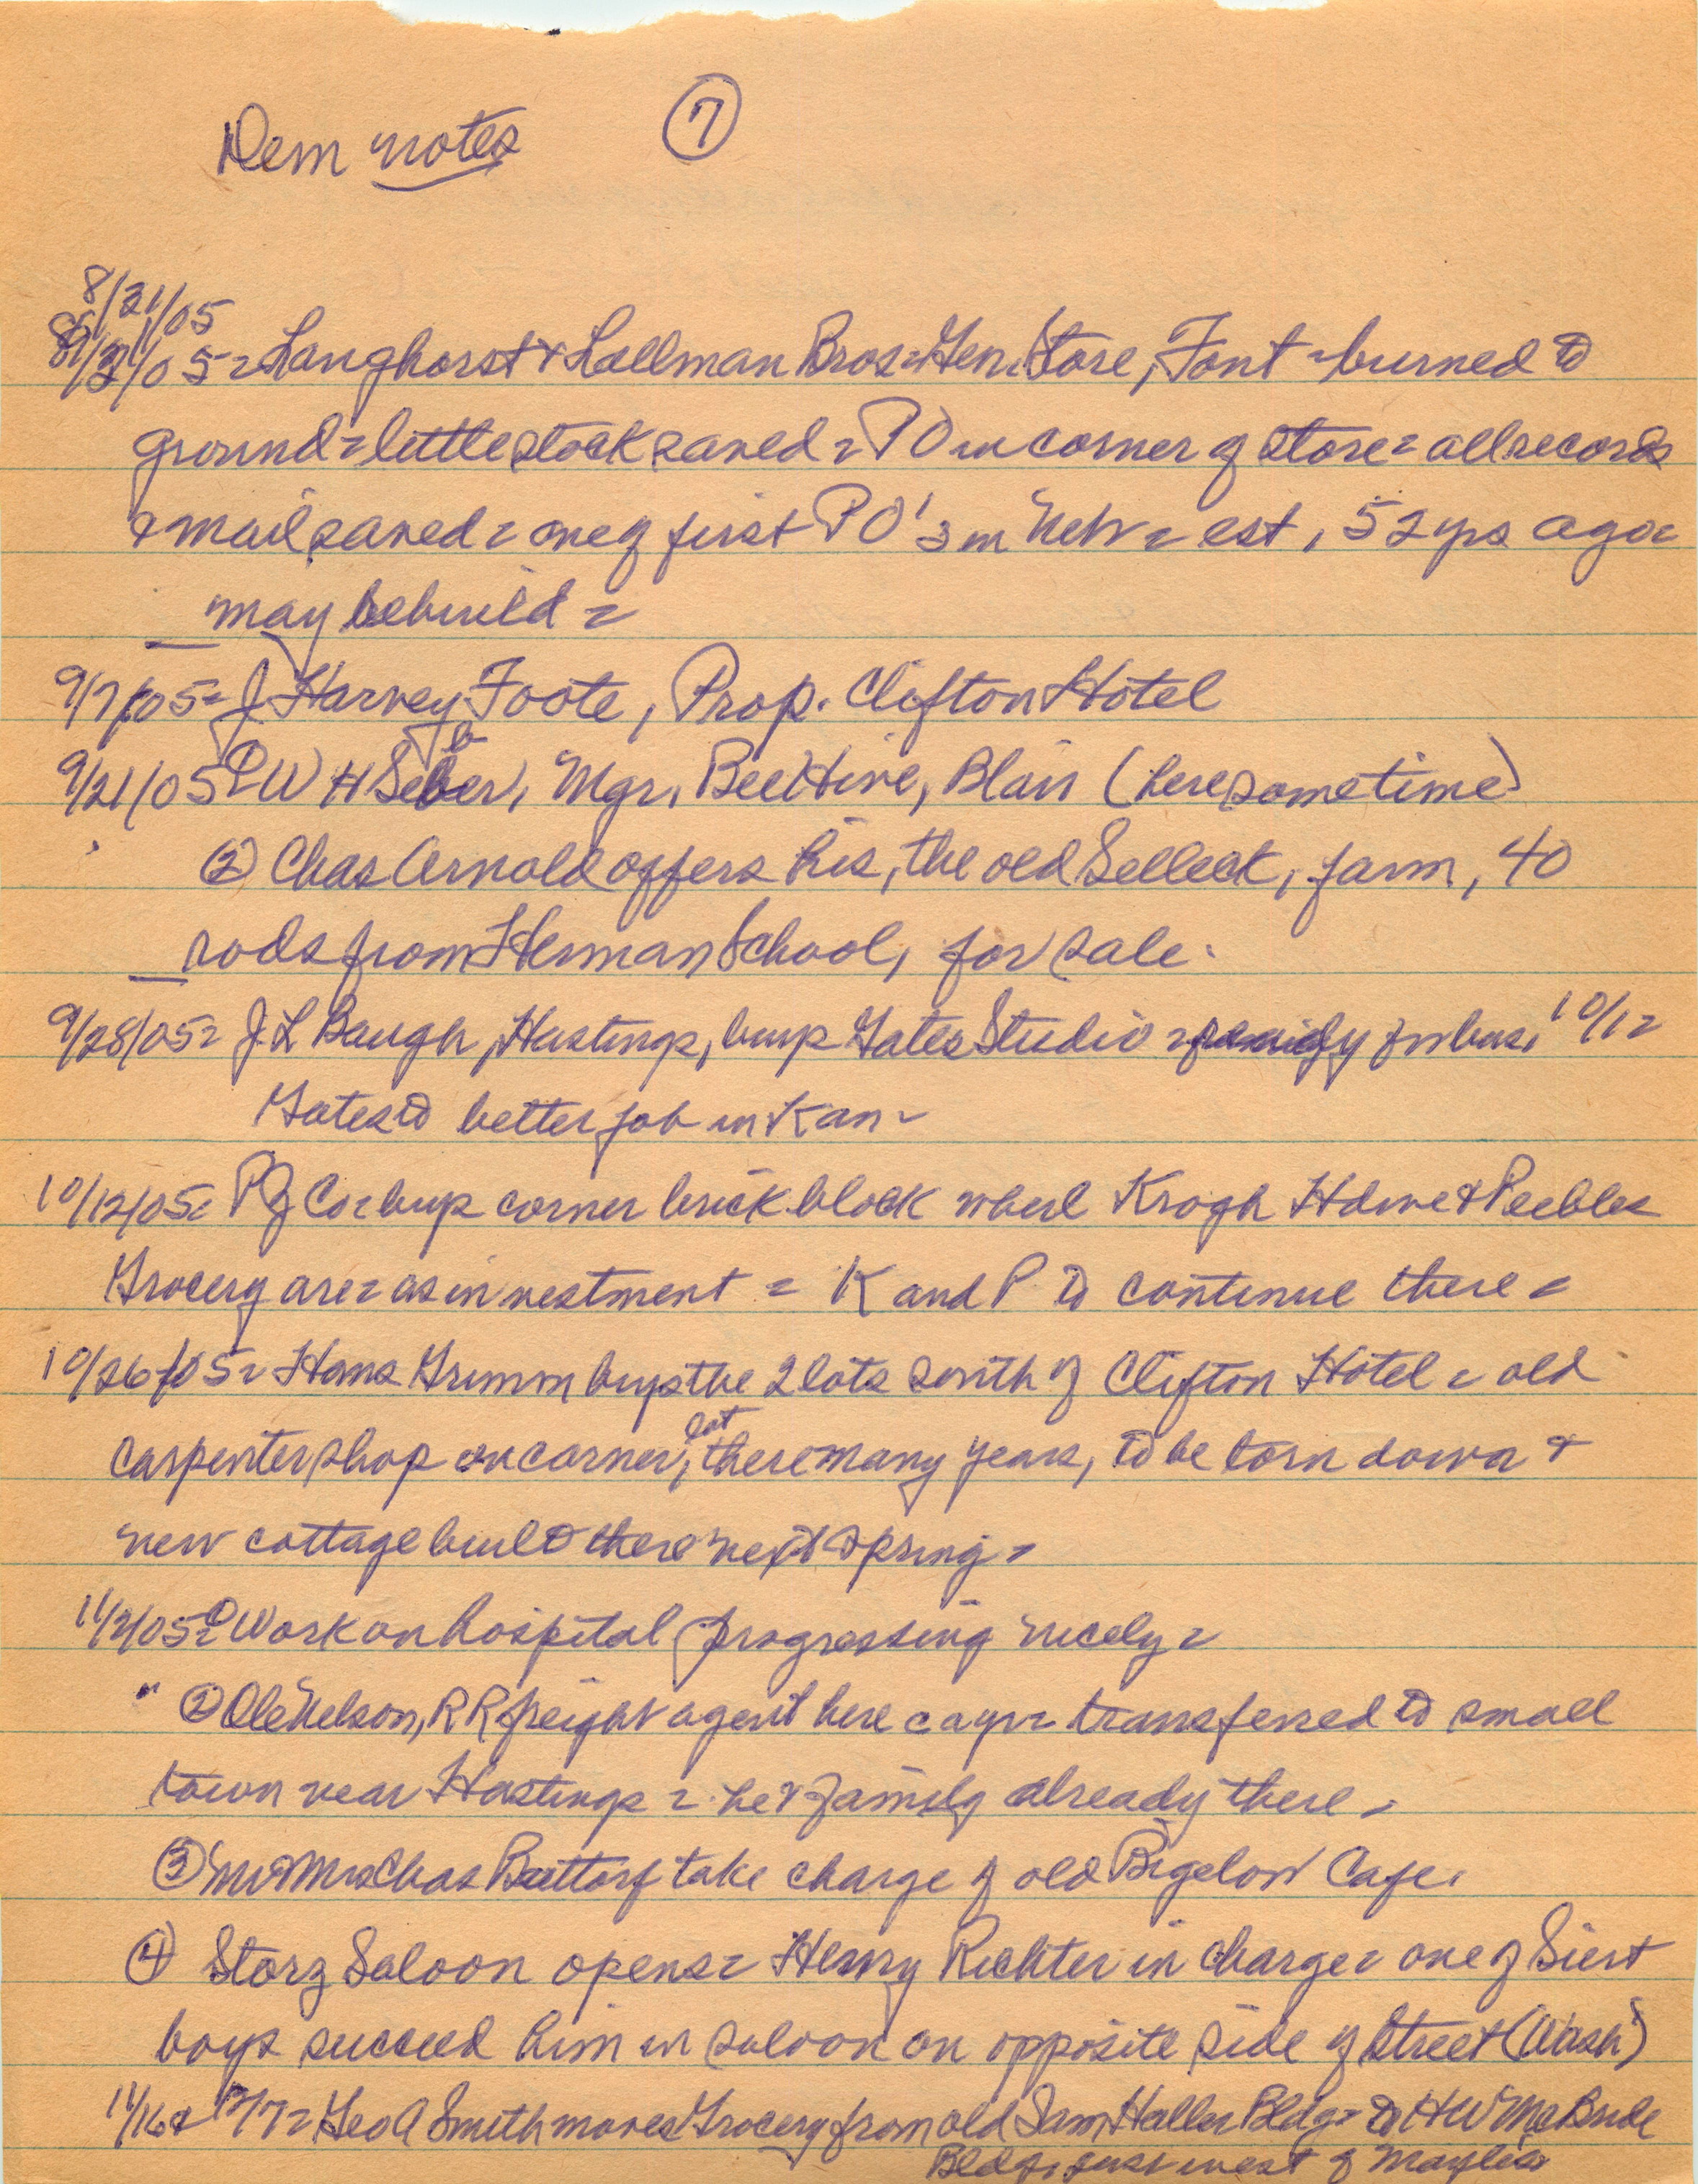 Dem notes ⑦
8/31/05
8/31/05 = Langhorst & Lallman Bros = Gen. Store, Font = burned to
ground = little stock saved = PO in corner of store = all records
& mail saved = one of first PO's in Neb = est, 52 yrs ago =
may rebuild =
9/7/05 = J Harvey Foote, Prop. Clifton Hotel
9/21/05 ① W H Seber, Mgr, BeeHive, Blair (here sometime)
② Chas Arnold offers his, the old Selleck, farm, 40
rods from Herman School, for sale.
9/28/05 = J L Baugh, Hastings, buys Gates Studio = ready for bus, 10/1 =
Gates to better job in Kan =
10/12/05 = P J Co = buys corner brick block where Krogh Hdwe & Peebles
Grocery are = as investment = K and P to continue there =
10/26/05 = Hans Grimm buys the 2 lots south of Clifton Hotel = old
carpenter shop on corner lot, there many years, to be torn down &
new cottage built there next spring =
11/2/05 = ① Work on hospital progressing nicely =
" ② Ole Nelson, RR freight agent here transferred to small
town near Hastings = he & family already there =
③ Mr & Mrs Chas Buttorf take charge of old Bigelow Cafe.
④ Storz Saloon opens = Henry Richter in charge = one of Siert
boys succeed him in saloon on opposite side of Street (Wash)
11/16 & 12/7 = Geo A Smith moves Grocery from old Sam Haller Bldg = to H W McBride
Bldg, just west of